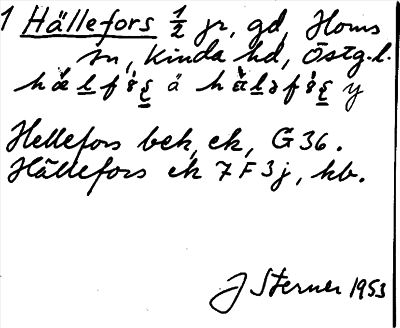 1 Hällefors ½ jr, gd, Horns
sn, Kinda hd, Östg.l.
Hellefors bek, ek, G 36.
Hällefors ek 7 F 3 j, kb.
J Sterner 1953